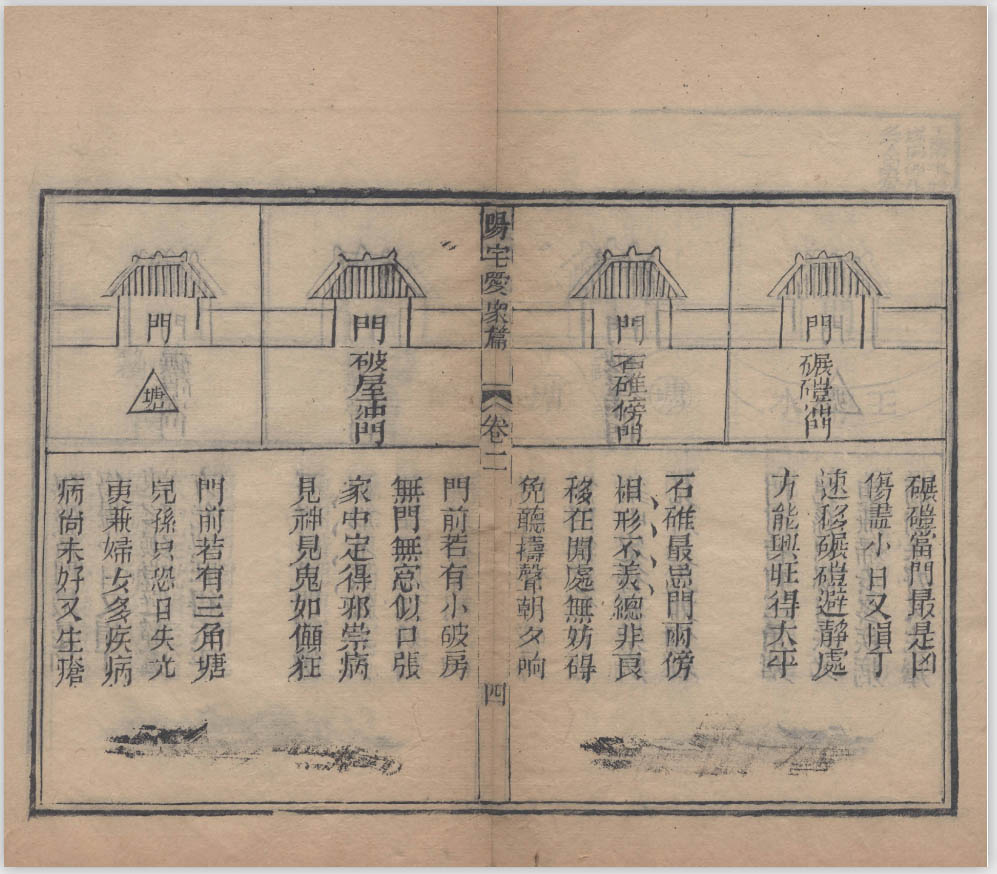 門
碾磑沖門
碾磑當門最是凶
傷畫小口又損丁
速移碾磑避靜處
方能興旺得太平
門
石碓傍門
石碓最忌門兩傍
相形不美總非良
移在閒處無妨碍
免聽擣聲朝夕响
陽宅愛衆篇
卷二
四
門
破屋沖門
門前若有小破房
無門無窓似口張
家中定得邪祟病
見神見鬼如傎狂
門
塘
門前若有三角塘
兒孫只恐目失光
更兼婦女多疾病
病尙未好又生瘡